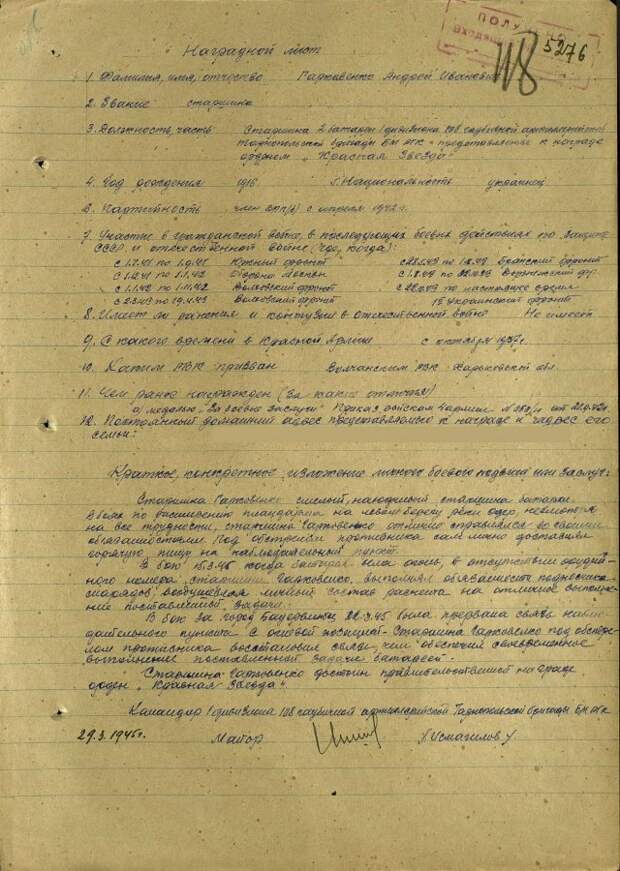 ПОЛУ
ВХОДЯЩ
5276
Наградной лист
1. Фамилия, имя, отчество Гарковенко Андрей Иванович
2. Звание старшина
3. Должность, часть Старшина 2 батареи 1 дивизиона 108 гаубичной артиллерийской
Тарнопольской бригады БМ РГК представляется к награде
орденом „Красная Звезда"
4. Год рождения 1918 5. Национальность украинец
6. Партийность член ВКП(б) с апреля 1942 г.
7. Участие в гражданской войне, в последующих боевых действиях по защите
СССР и отечественной войне (где, когда):
Южный фронт Брянский фронт
Оборона Москвы Воронежский фр.
с 1.1.42 по 1.11.42 Волховский фронт по настоящее время
Волховский фронт 1й Украинский фронт
8. Имеет ли ранения и контузии в отечественной войне Не имеет
9. С какого времени в Красной Армии с октября
10. Каким РВК призван Волчанским РВК Харьковской обл.
11. Чем ранее награжден (за какие отличия)
а) медалью „За боевые заслуги" Приказ войскам
12. Постоянный домашний адрес представляемого к награде и адрес его
семьи:
Краткое, конкретное изложение личного боевого подвига или заслуг:
Старшина Гарковенко смелый, находчивый старшина батареи.
В боях по расширению плацдарма на левом берегу реки Одер, несмотря
на все трудности, старшина Гарковенко отлично справлялся со своими
обязанностями. Под обстрелом противника сам лично доставлял
горячую пищу на наблюдательный пункт.
В бою 15.3.45 когда батарея вела огонь, в отсутствии орудий-
ного номера, старшина Гарковенко, выполнял обязанности подносчика
снарядов, воодушевляя личный состав расчета на отличное выполне-
ние поставленной задачи.
В бою за город 22.3.45 была прервана связь наблю-
дательного пункта с огневой позицией. Старшина Гарковенко под обстре-
лом противника восстановил связь, чем обеспечил своевременное
выполнение поставленной задачи батареей.
Старшина Гарковенко достоин правительственной награде
орден „Красная Звезда".
Командир 1 дивизиона 108 гаубичной артиллерийской Тарнопольской бригады БМ РГК
29.3.1945г. Майор /Исмагилов/